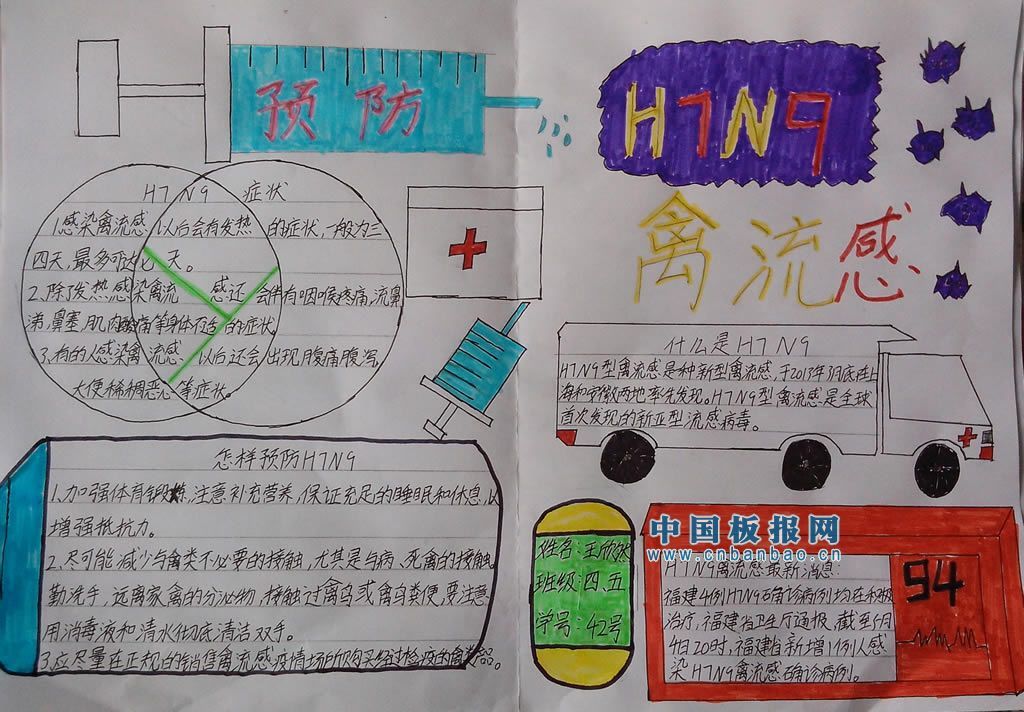 预防
H7N9
禽流感
H7N9 症状
1.感染禽流感以后会有发热的症状,一般为三
四天,最多可达七天。
2.除了发热感染禽流感还会伴有咽喉疼痛,流鼻
涕,鼻塞,肌肉酸痛等身体不适的症状。
3.有的人感染禽流感以后还会出现腹痛腹泻,
大便稀稠恶心等症状。
什么是H7N9
H7N9型禽流感是种新型禽流感,于2013年3月底在上
海和安徽两地率先发现。H7N9型禽流感是全球
首次发现的新亚型流感病毒。
怎样预防H7N9
1、加强体育锻炼,注意补充营养,保证充足的睡眠和休息,以
增强抵抗力。
2、尽可能减少与禽类不必要的接触,尤其是与病、死禽的接触。
勤洗手,远离家禽的分泌物,接触过禽鸟或禽鸟粪便,要注意
用消毒液和清水彻底清洁双手。
3、应尽量在正规的销售禽流感疫情场所购买经过检疫的禽类
姓名:王欣然
班级:四、五
学号:42号
中国板报网
www.cnbanbao.cn
H7N9禽流感最新消息:
福建4例H7N9确诊病例均在积极
治疗,福建省卫生厅通报,截至5月
4日20时,福建省新增1例人感
染H7N9禽流感确诊病例。
94